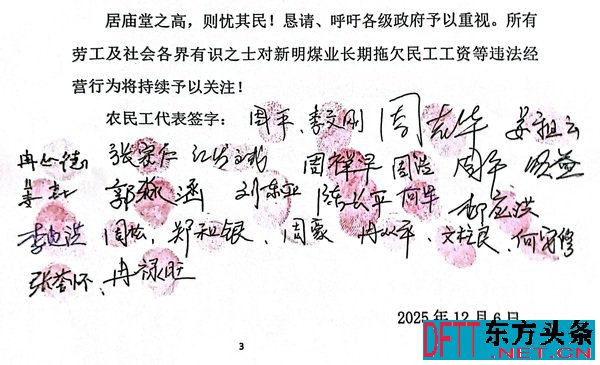 居庙堂之高，则忧其民！恳请、呼吁各级政府予以重视。所有
劳工及社会各界有识之士对新明煤业长期拖欠民工工资等违法经
营行为将持续予以关注！
农民工代表签字：周平、李文刚 周志华 姜祖云
张宗仁 周祥平 周浩 周平
郭敬涵 刘东平 陈长平 何华 郁应洪
周松、郑和银、周蒙、冉从平、文柱民、何守修
张荃怀、冉禄旺
2025年12月6日
3
DFTT 东方头条
.NET.CN